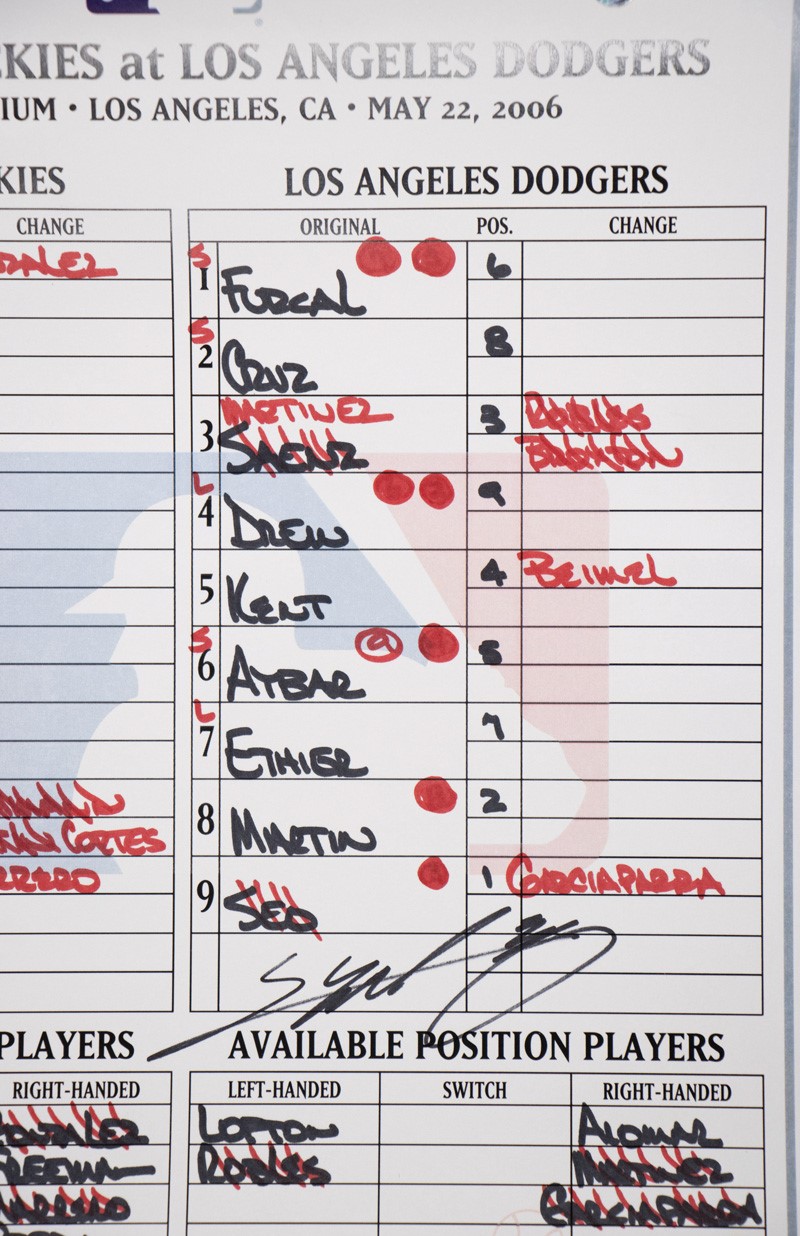 CKIES at LOS ANGELES DODGERS
IUM • LOS ANGELES, CA • MAY 22, 2006
KIES
CHANGE
ZALEZ
CORTES
LOS ANGELES DODGERS
ORIGINAL POS. CHANGE
S 1 FURCAL 6
S 2 CRUZ 8
MARTINEZ ROBLES
3 SAENZ 3 BROXTON
L 4 DREW 9
5 KENT 4 BEIMEL
S 6 AYBAR 5
L 7 ETHIER 7
8 MARTIN 2
9 SEO 1 GARCIAPARRA
PLAYERS
RIGHT-HANDED
GONZALEZ
FREEMAN
AVAILABLE POSITION PLAYERS
LEFT-HANDED SWITCH RIGHT-HANDED
LOFTON ALOMAR
ROBLES MARTINEZ
GARCIAPARRA